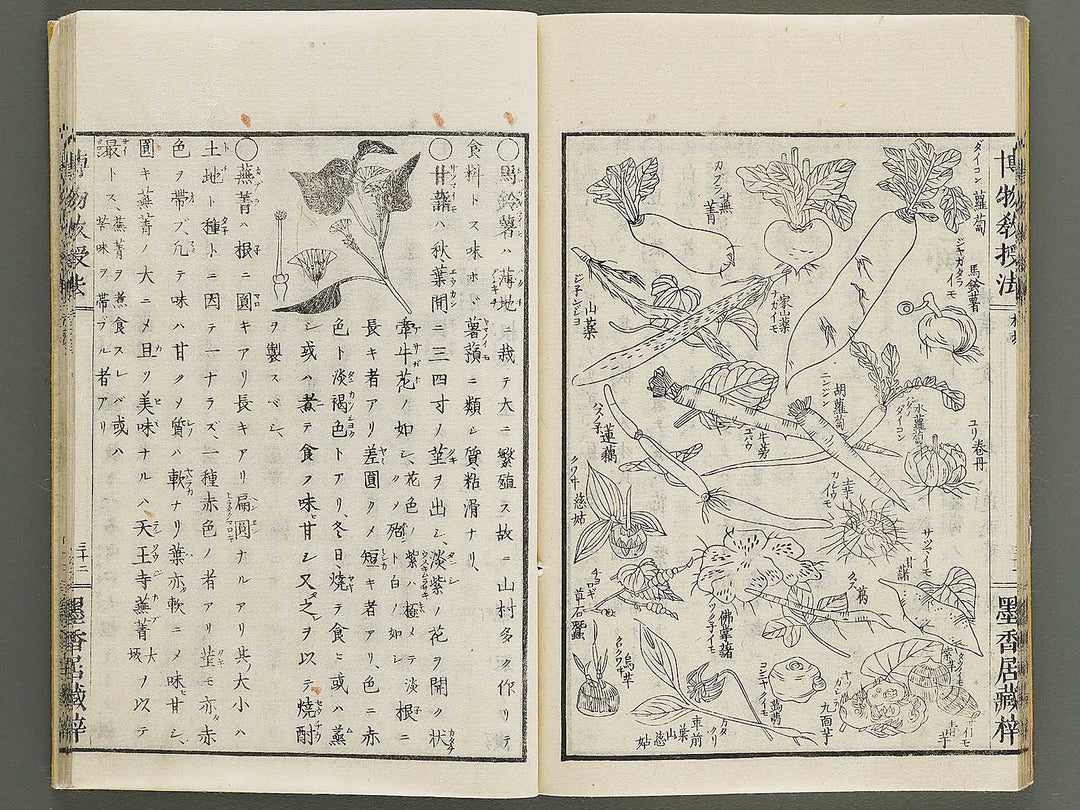 博物教授法
墨香居藏梓
ダイコン 蘿蔔
カブラ 蕪菁
ジャガタライモ 馬鈴薯
家山薬
山薬
胡蘿蔔 ニンジン
水蘿蔔 ダイコン
ユリ 巻丹
牛蒡
ハスノ子 蓮藕
クワヰ 慈姑
土芋 カシウイモ
サツマイモ 甘藷
葛
佛掌藷 ツク子イモ
チョロギ 草石蠶
クロクワヰ 烏芋
コンニャクイモ 蒟蒻
九面芋
青芋
カタクリ 車前葉山慈姑
○馬鈴薯ハ薄地ニ栽テ大ニ繁殖ス故ニ山村多ク作リテ
食料トス味ホヾ薯蕷ニ類シ質粘滑ナリ
○甘藷ハ秋葉間ニ三四寸ノ莖ヲ出シ淡紫ノ花ヲ開ク状
牽牛花ノ如シ
花色ノ紫ハ極メテ淡
ク殆ト白ノ如シ
根ニ
長キ者アリ差圓クメ短キ者アリ色ニ赤
色ト淡褐色トアリ冬日燒テ食ヒ或ハ蒸
シ或ハ煮テ食フ味甘シ又之ヲ以テ燒酎
ヲ製スベシ
○蕪菁ハ根ニ圓キアリ長キアリ扁圓ナルアリ其大小ハ
土地ト種トニ因テ一ナラズ一種赤色ノ者アリ莖モ亦赤
色ヲ帶ブ凢テ味ハ甘クメ質ハ軟ナリ葉亦軟ニメ味甘シ
圓キ蕪菁ノ大ニメ且ツ美味ナルハ天王寺蕪菁 大坂 ヲ以テ
最トス
蕪菁ヲ煮食スレバ或ハ
苦味ヲ帶ブル者アリ
三十二
墨香居藏梓